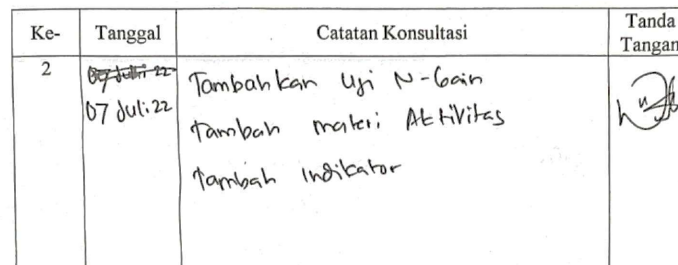 Ke- Tanggal Catatan Konsultasi Tanda Tangan
2 07 Juli 22
07 Juli 22
Tambahkan Uji N-Gain
Tambah materi Aktivitas
Tambah Indikator